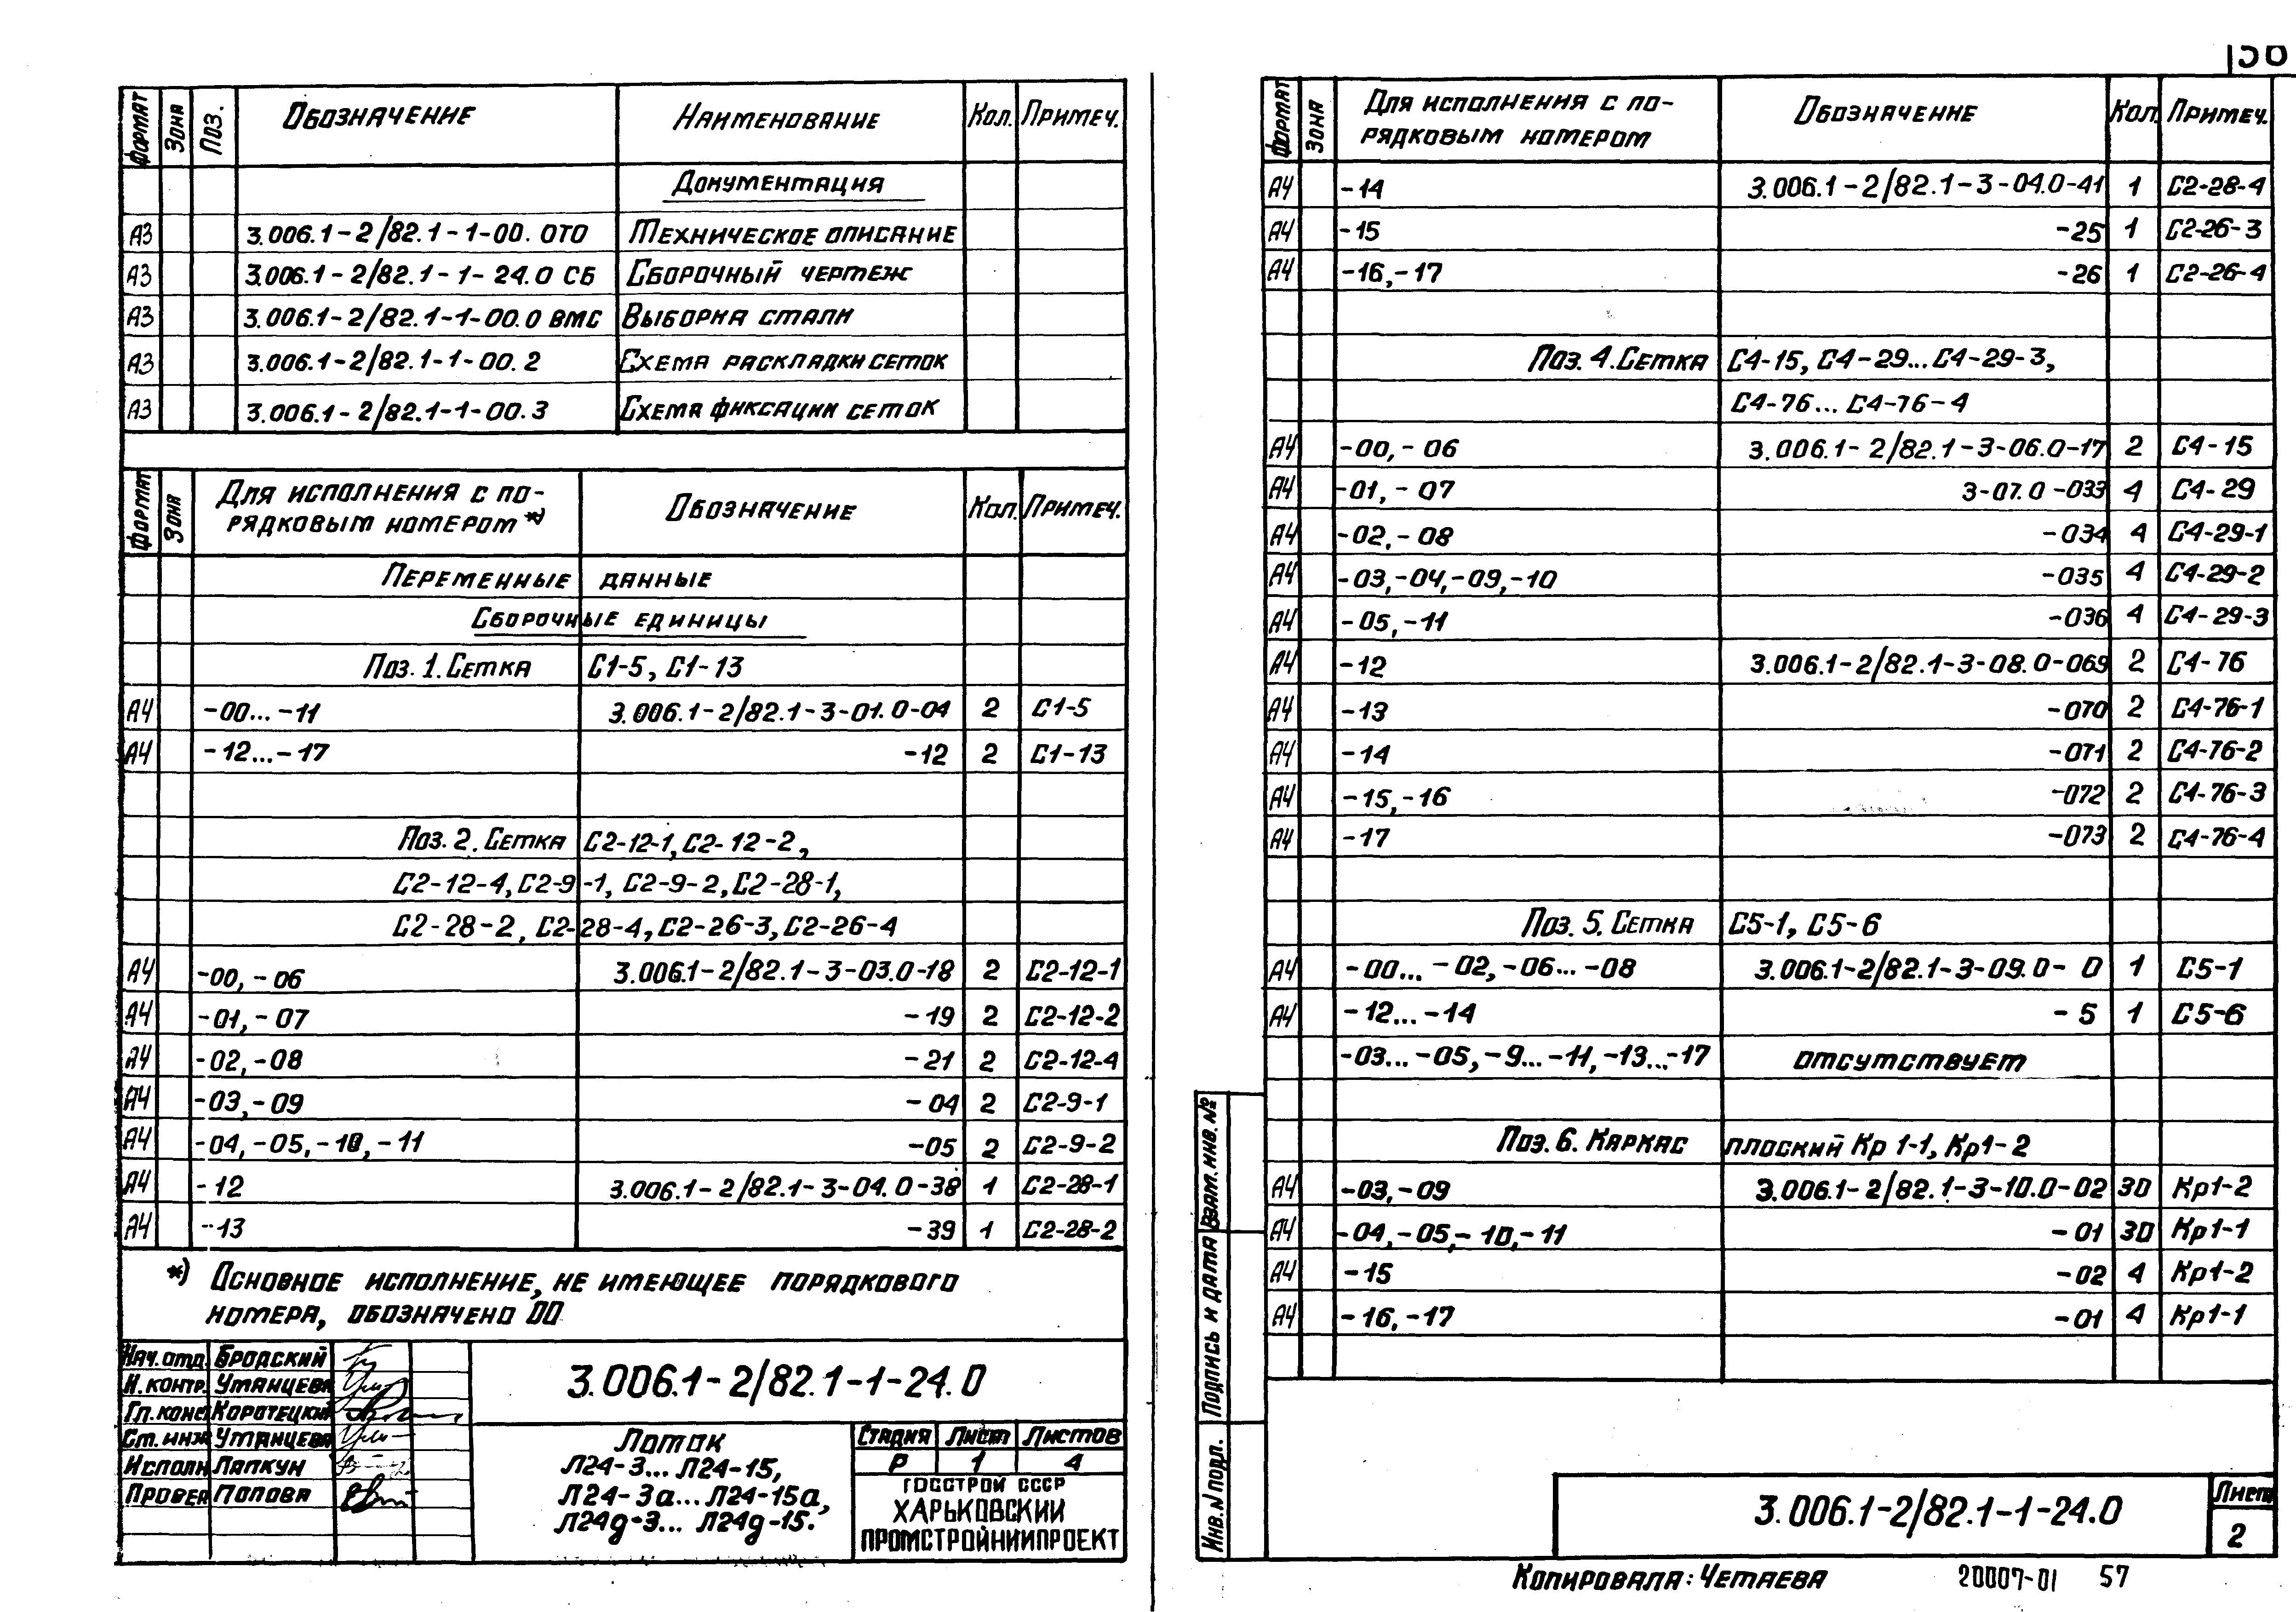 56
Формат Зона Поз. Обозначение Наименование Кол. Примеч.
Документация
А3 3.006.1-2/82.1-1-00.0ТО Техническое описание
А3 3.006.1-2/82.1-1-24.0 СБ Сборочный чертеж
А3 3.006.1-2/82.1-1-00.0 ВМС Выборка стали
А3 3.006.1-2/82.1-1-00.2 Схема раскладки сеток
А3 3.006.1-2/82.1-1-00.3 Схема фиксации сеток
Формат Зона Для исполнения с по- Обозначение Кол. Примеч.
рядковым номером *)
Переменные данные
Сборочные единицы
Поз. 1. Сетка С1-5, С1-13
А4 -00...-11 3.006.1-2/82.1-3-01.0-04 2 С1-5
А4 -12...-17 -12 2 С1-13
Поз. 2. Сетка С2-12-1, С2-12-2,
С2-12-4, С2-9-1, С2-9-2, С2-28-1,
С2-28-2, С2-28-4, С2-26-3, С2-26-4
А4 -00, -06 3.006.1-2/82.1-3-03.0-18 2 С2-12-1
А4 -01, -07 -19 2 С2-12-2
А4 -02, -08 -21 2 С2-12-4
А4 -03, -09 -04 2 С2-9-1
А4 -04, -05, -10, -11 -05 2 С2-9-2
А4 -12 3.006.1-2/82.1-3-04.0-38 1 С2-28-1
А4 -13 -39 1 С2-28-2
*) Основное исполнение, не имеющее порядкового
номера, обозначено 00
Нач. отд. Бродский
Н. контр. Уманцева
Гл. конс Коротецкий
Ст. инж Уманцева
Исполн Лапкун
Провер Попова
3.006.1-2/82.1-1-24.0
Лоток
Л24-3... Л24-15,
Л24-3а... Л24-15а,
Л24д-3... Л24д-15.
Стадия Лист Листов
Р 1 4
Госстрой СССР
Харьковский
Промстройниипроект
Формат Зона Для исполнения с по- Обозначение Кол. Примеч.
рядковым номером
А4 -14 3.006.1-2/82.1-3-04.0-41 1 С2-28-4
А4 -15 -25 1 С2-26-3
А4 -16, -17 -26 1 С2-26-4
Поз. 4. Сетка С4-15, С4-29... С4-29-3,
С4-76... С4-76-4
А4 -00, -06 3.006.1-2/82.1-3-06.0-17 2 С4-15
А4 -01, -07 3-07.0-033 4 С4-29
А4 -02, -08 -034 4 С4-29-1
А4 -03, -04, -09, -10 -035 4 С4-29-2
А4 -05, -11 -036 4 С4-29-3
А4 -12 3.006.1-2/82.1-3-08.0-069 2 С4-76
А4 -13 -070 2 С4-76-1
А4 -14 -071 2 С4-76-2
А4 -15, -16 -072 2 С4-76-3
А4 -17 -073 2 С4-76-4
Поз. 5. Сетка С5-1, С5-6
А4 -00... -02, -06... -08 3.006.1-2/82.1-3-09.0- 0 1 С5-1
А4 -12... -14 - 5 1 С5-6
-03... -05, -9... -11, -13... -17 отсутствует
Поз. 6. Каркас плоский Кр 1-1, Кр1-2
А4 -03, -09 3.006.1-2/82.1-3-10.0-02 30 Кр1-2
А4 -04, -05, -10, -11 -01 30 Кр1-1
А4 -15 -02 4 Кр1-2
А4 -16, -17 -01 4 Кр1-1
Взам. инв. №
Подпись и дата
Инв. N подл.
3.006.1-2/82.1-1-24.0
Лист
2
Копировала: Четаева 20007-01 57